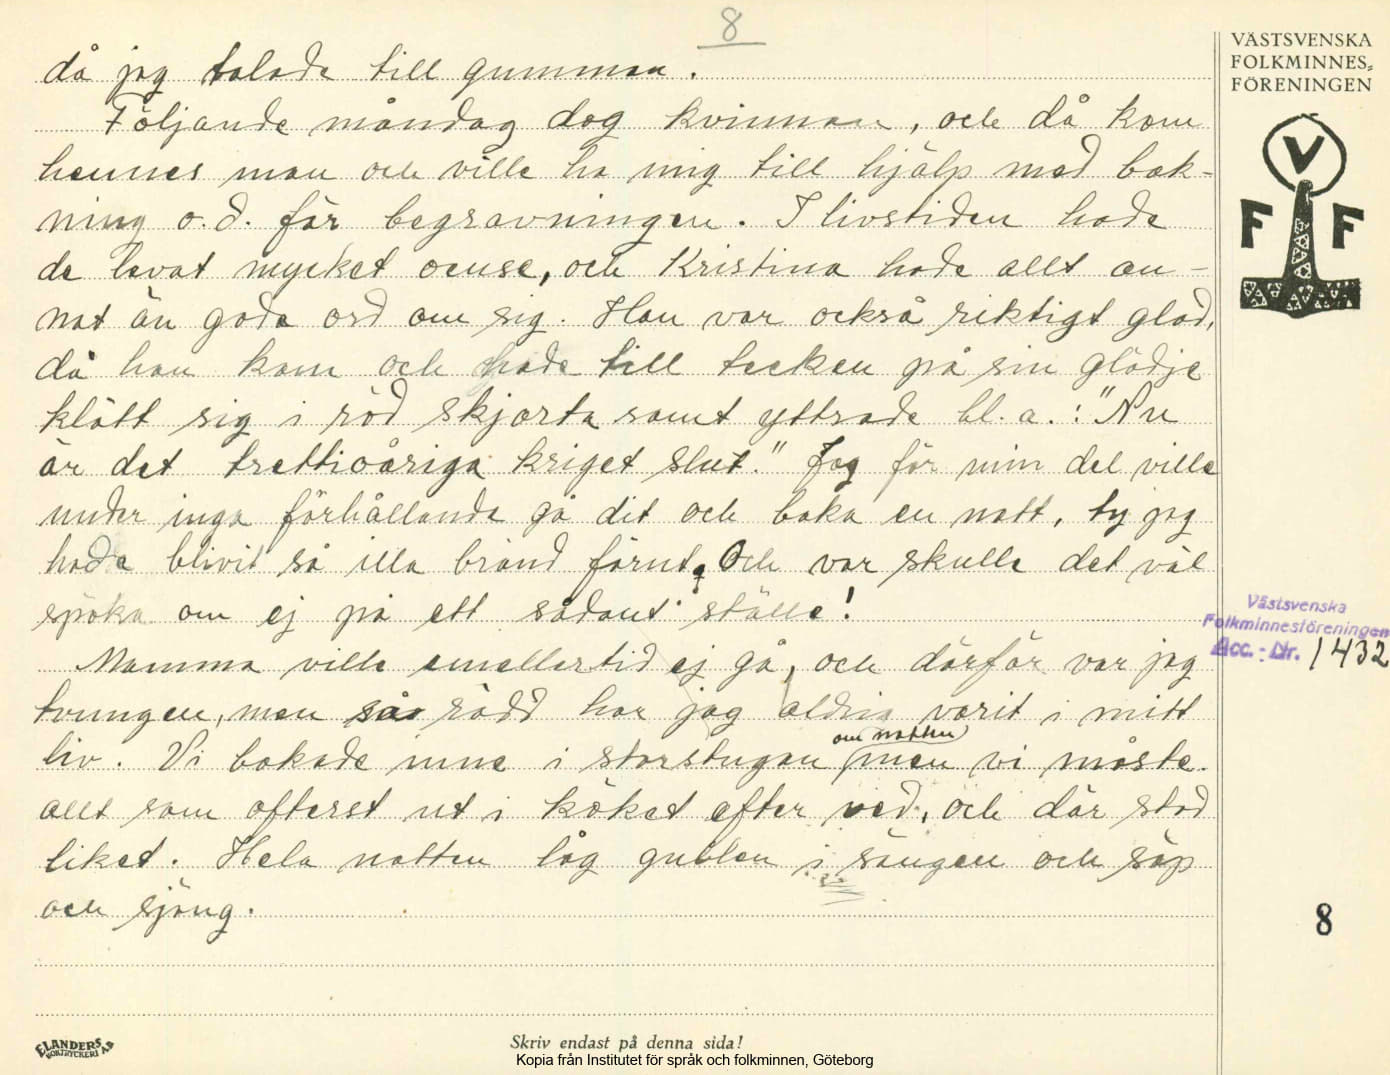 8
då jag talade till gumman.
Följande måndag dog kvinnan, och då kom
hennes man och ville ha mig till hjälp med bak-
ning o.d. för begravningen. I livstiden hade
de levat mycket oense, och Kristina hade allt an-
nat än goda ord om sig. Han var också riktigt glad,
då han kom och hade till tecken på sin glädje
klätt sig i röd skjorta samt yttrade bl.a.: "Nu
är det trettioåriga kriget slut." Jag för min del ville
under inga förhållande gå dit och baka en natt, ty jag
hade blivit så illa bränd förut. Och var skulle det väl
spöka om ej på ett sådant ställe!
Mamma ville emellertid ej gå, och därför var jag
tvungen, men så rädd har jag aldrig varit i mitt
om natten
liv. Vi bakade inne i storstugan men vi måste
allt som oftast ut i köket efter ved, och där stod
liket. Hela natten låg gubben i sängen och söp
och sjöng.
VÄSTSVENSKA
FOLKMINNES-
FÖRENINGEN
V
F F
Västsvenska
Folkminnesföreningen
Acc. - Nr. 1432
8
ELANDERS
BOKTRYCKERI AB
Skriv endast på denna sida!
Kopia från Institutet för språk och folkminnen, Göteborg